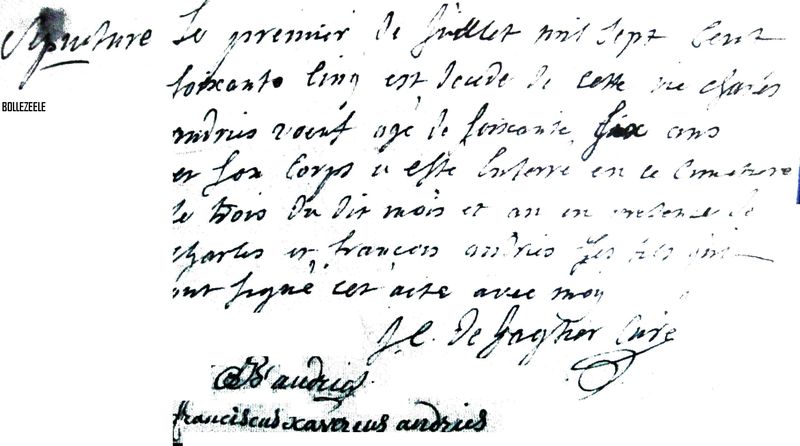 Sepulture Le premier de juillet mil sept cent
soixante cinq est decede de cette vie charles
BOLLEZEELE
andries voeuf agé de soixante six ans
et son corps a esté enterré en ce cimetiere
le trois du dit mois et an en presence de
charles et francois andries ses fils qui
ont signé cet acte avec moy
J. C. De Curé
andries
franciscus xavereus andries